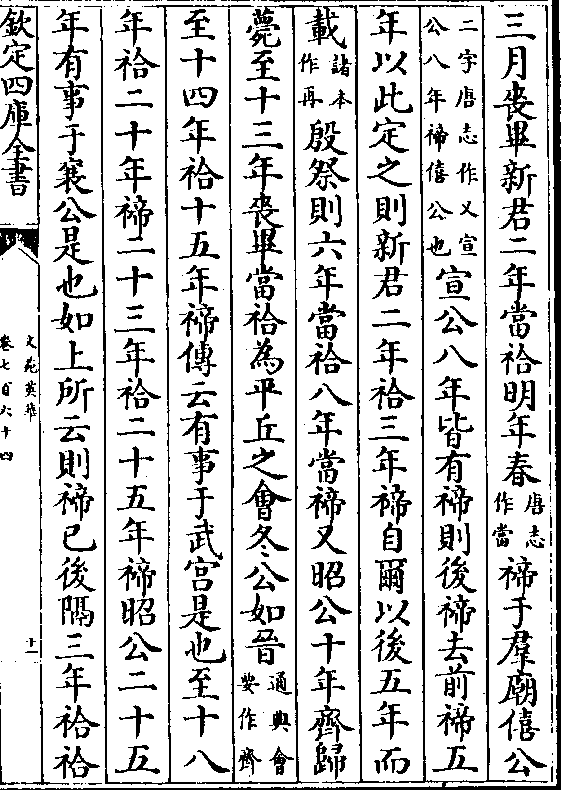 三月喪畢新君二年當祫明年春唐志作當禘于羣廟僖公
二字唐志作又宣公八年禘僖公也宣公八年皆有禘則後禘去前禘五
年以此定之則新君二年祫三年禘自爾以後五年而
載諸本作再殷祭則六年當祫八年當禘又昭公十年齊歸
薨至十三年喪畢當祫為平丘之會冬公如晉通典會要作齊
至十四年祫十五年禘傳云有事于武宫是也至十八
年祫二十年禘二十三年祫二十五年禘昭公二十五
年有事于襄公是也如上所云則禘已後隔三年祫祫
欽定四庫全書
文苑英華
卷七百六十四
十一